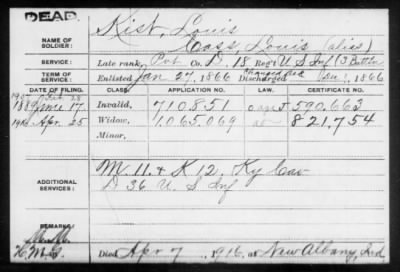 DEAD.
NAME OF SOLDIER: Kist, Louis
Cass, Louis (alias)
SERVICE: Late rank, Pvt Co. D, 18 Reg't U S Inf (3 Battln
TERM OF SERVICE: Enlisted Jan 27, 1866 Discharged Dec 1, 1866
DATE OF FILING. CLASS. APPLICATION NO. LAW. CERTIFICATE NO.
1889 June 17 Invalid, 710.851 590.663
1916 Apr. 25 Widow, 1.065.069 821.754
Minor,
ADDITIONAL SERVICES: M. 11. & K 12. Ky Cav
D 36 U S Inf
REMARKS:
Died Apr 7, 1916, at New Albany, Ind